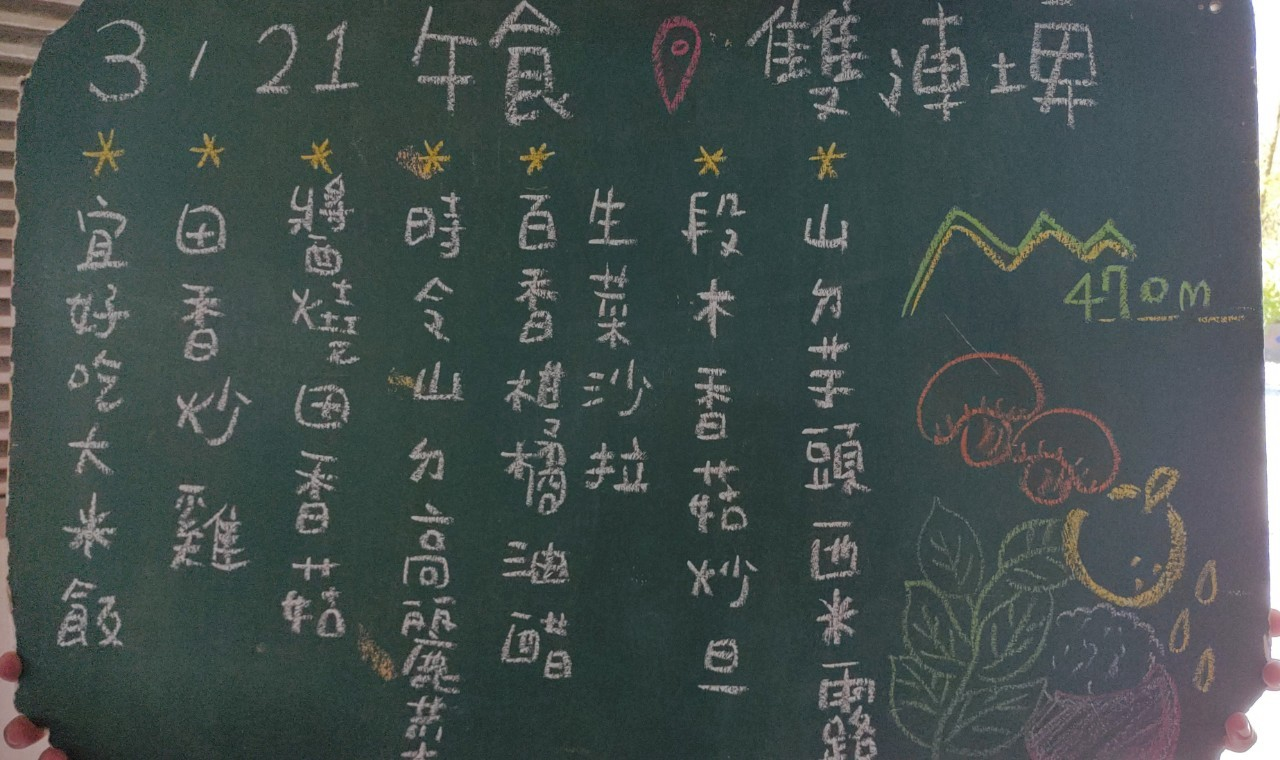 3/21 午食 雙連埤
宜好吃大米飯
田香炒雞
醬燒田香菇
時令山ㄉ高麗菜
百香柑橘油醋
生菜沙拉
段木香菇炒旦
山ㄉ芋頭西米露
470m